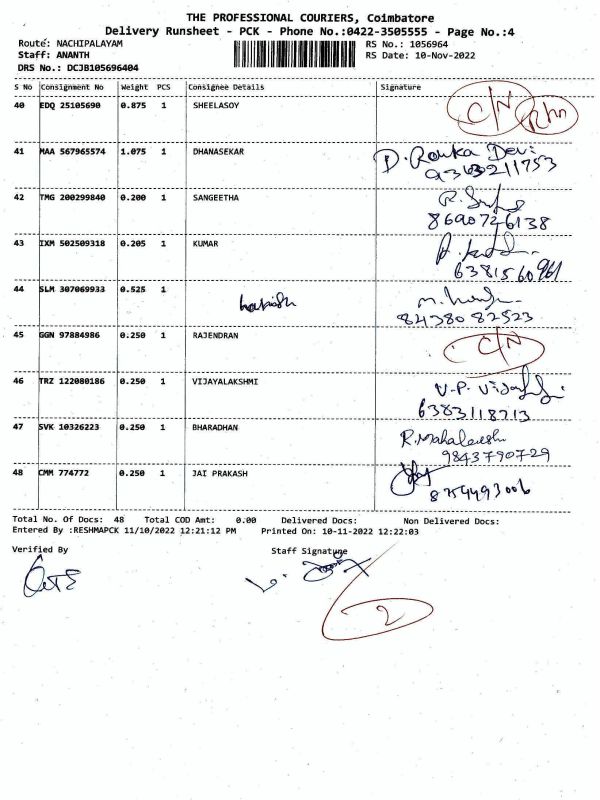 THE PROFESSIONAL COURIERS, Coimbatore
Delivery Runsheet - PCK - Phone No.:0422-3505555 - Page No.:4
Route: NACHIPALAYAM RS No.: 1056964
Staff: ANANTH RS Date: 10-Nov-2022
DRS No.: DCJB105696404
S No Consignment No Weight PCS Consignee Details Signature
40 EDQ 25105690 0.875 1 SHEELASOY C/N
41 MAA 567965574 1.075 1 DHANASEKAR D. Devi
42 TMG 200299840 0.200 1 SANGEETHA
8690726138
43 IXM 502509318 0.205 1 KUMAR
6381560961
44 SLM 307069933 0.525 1
harish
8438082523
45 GGN 97884986 0.250 1 RAJENDRAN C/N
46 TRZ 122080186 0.250 1 VIJAYALAKSHMI V.P.
6383118713
47 SVK 10326223 0.250 1 BHARADHAN R. Mahalakshmi
9843790729
48 CMM 774772 0.250 1 JAI PRAKASH
8754493006
Total No. Of Docs: 48 Total COD Amt: 0.00 Delivered Docs: Non Delivered Docs:
Entered By :RESHMAPCK 11/10/2022 12:21:12 PM Printed On: 10-11-2022 12:22:03
Verified By Staff Signature
2